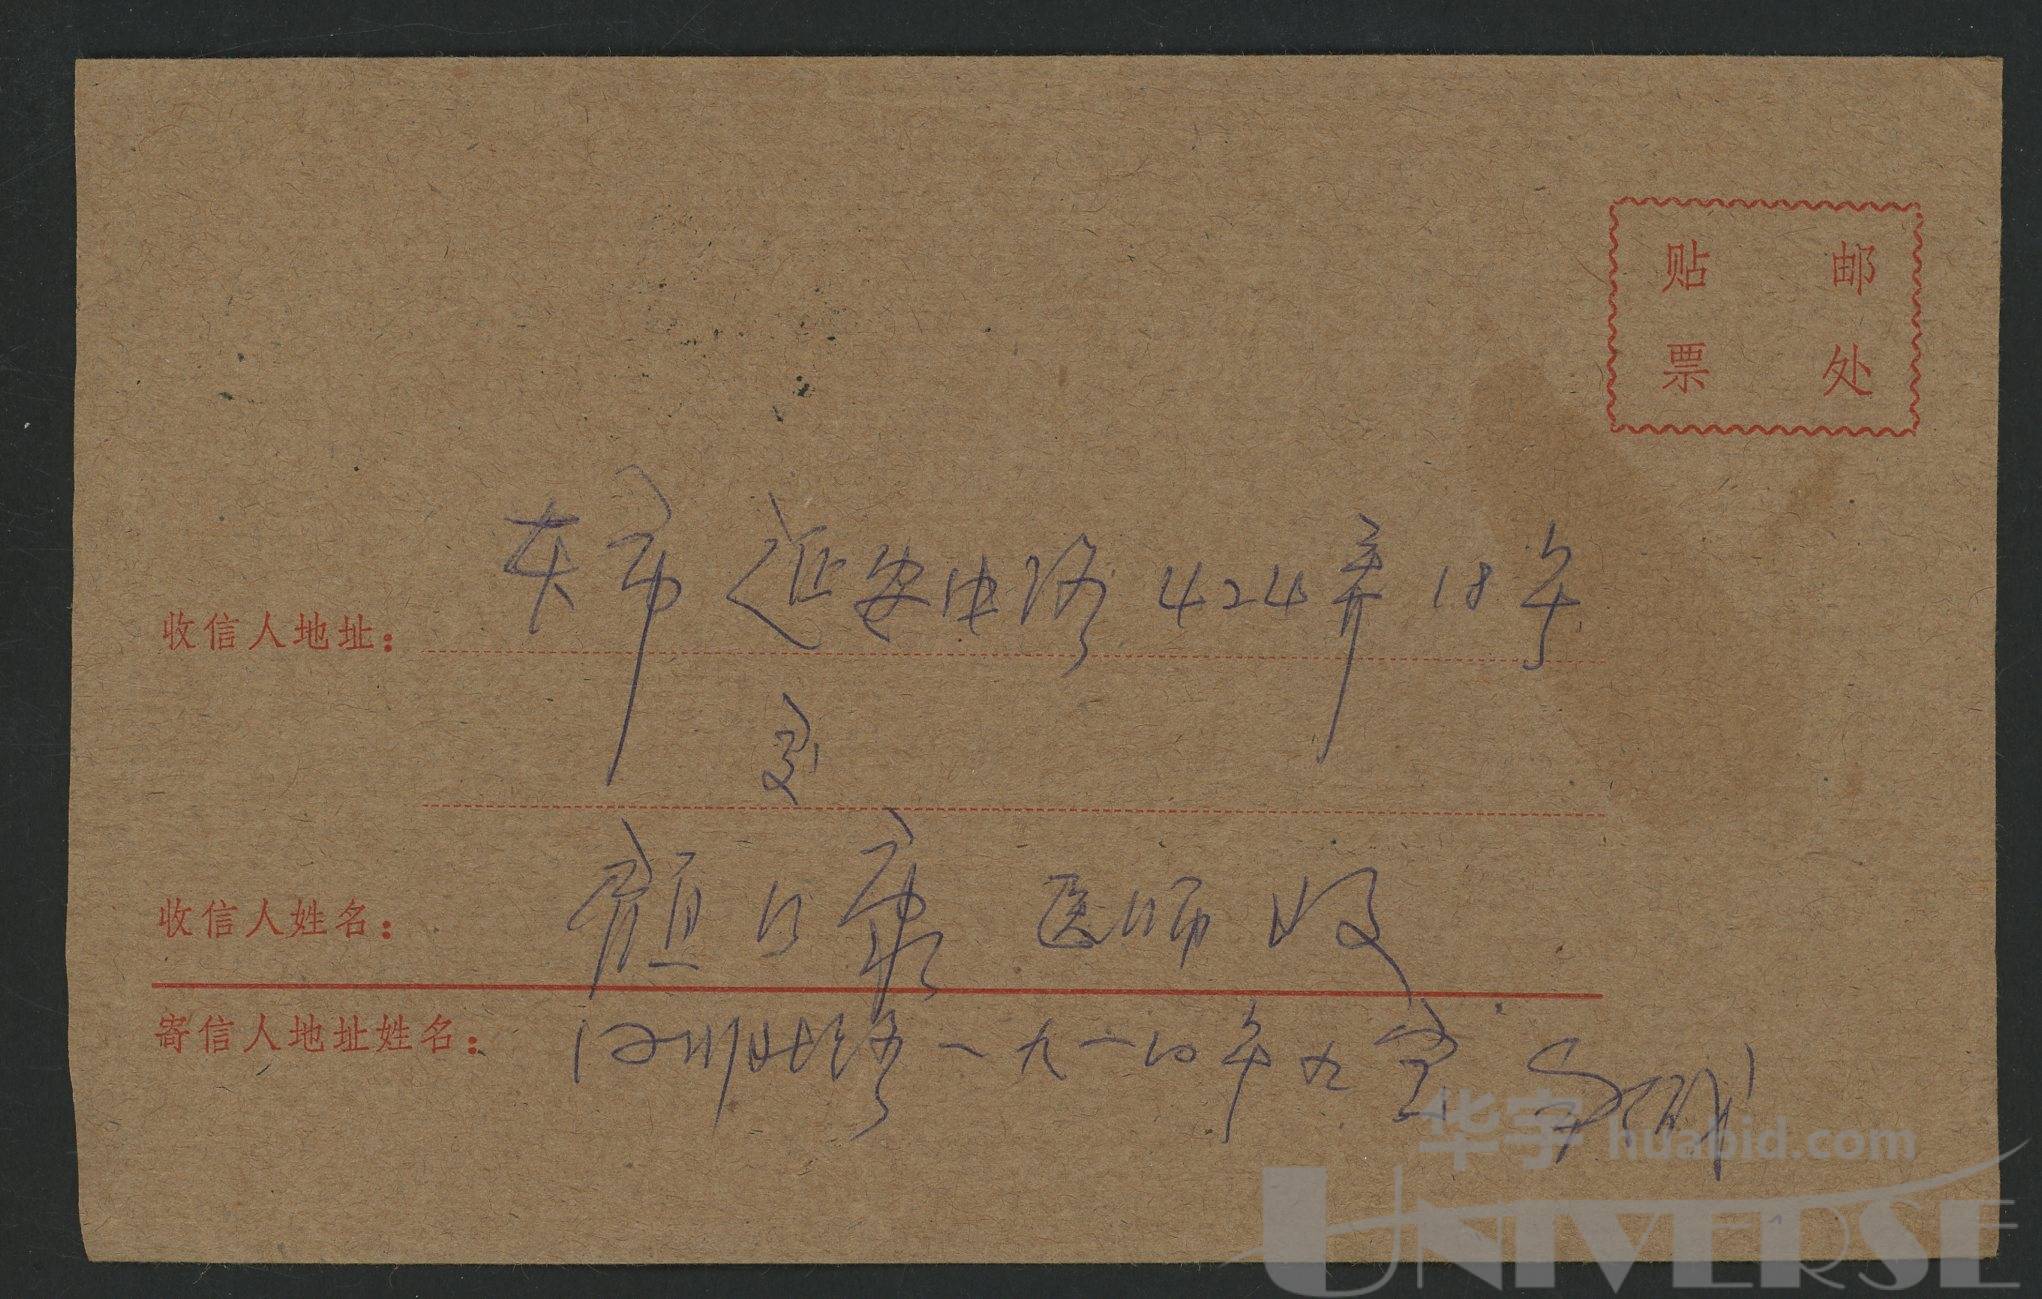 贴 邮
票 处
收信人地址： 本市延安中路424弄18号
收信人姓名： 颜 康 医师 收
寄信人地址姓名： 四川北路一九一〇弄九室
华宇 huabid.com
UNIVERSE